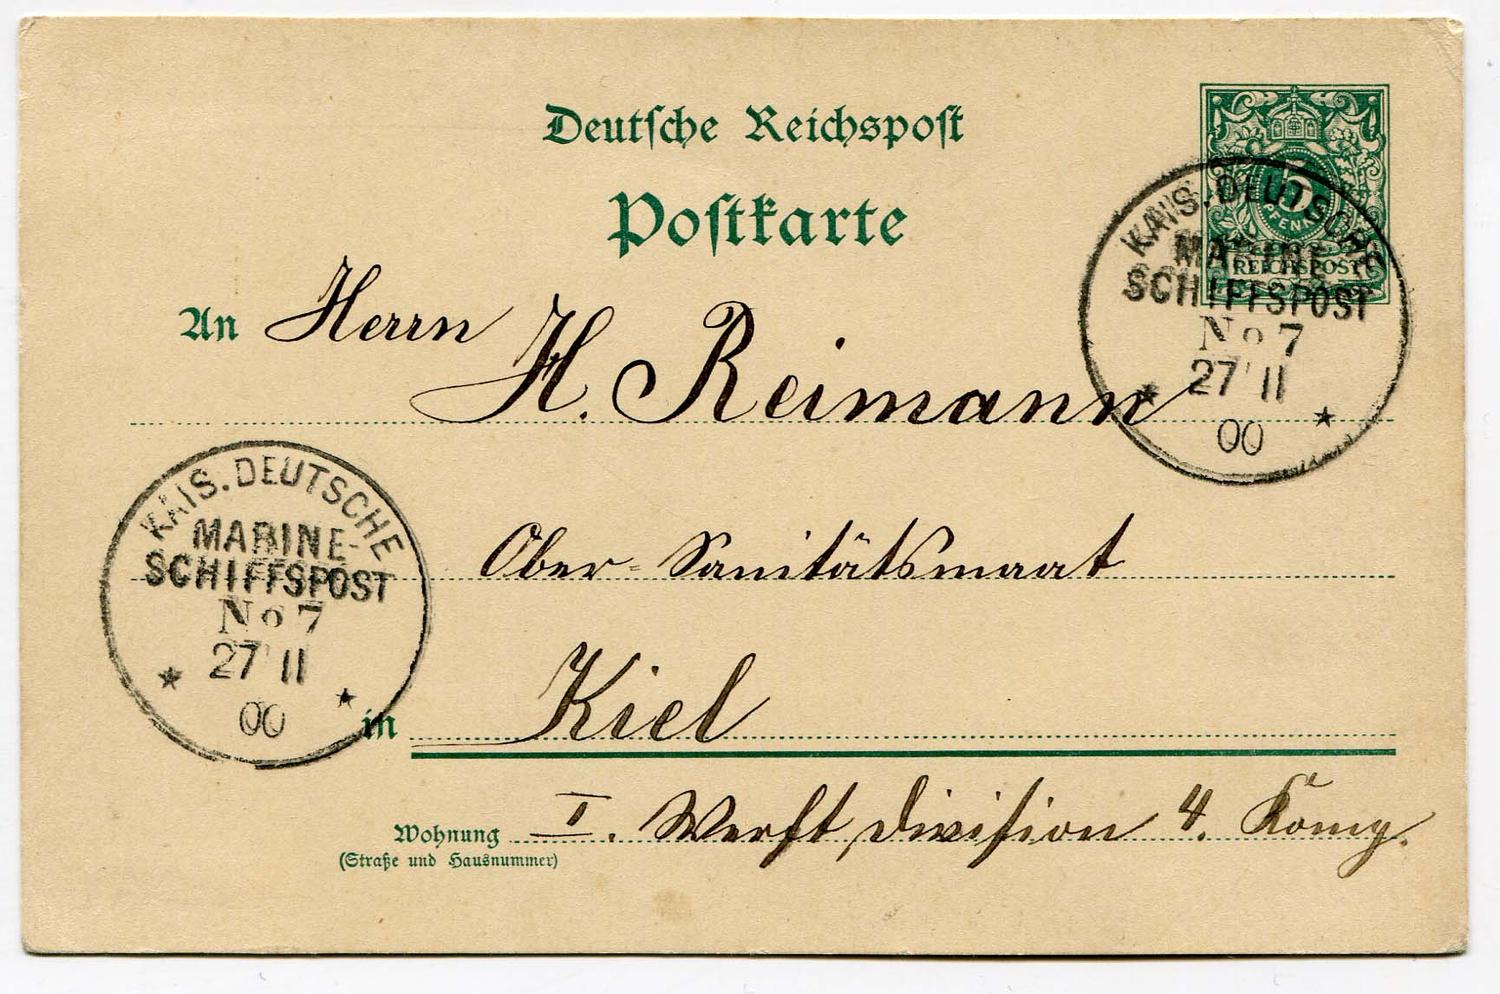 Deutsche Reichspost
Postkarte
5
PFENNIG
REICHSPOST
KAIS. DEUTSCHE
MARINE-
SCHIFFSPOST
No 7
27 11
00
An Herrn
H. Reimann
Ober-Sanitätsmaat
KAIS. DEUTSCHE
MARINE-
SCHIFFSPOST
No 7
27 11
00
in Kiel
Wohnung I. Werft Division 4.
(Straße und Hausnummer)